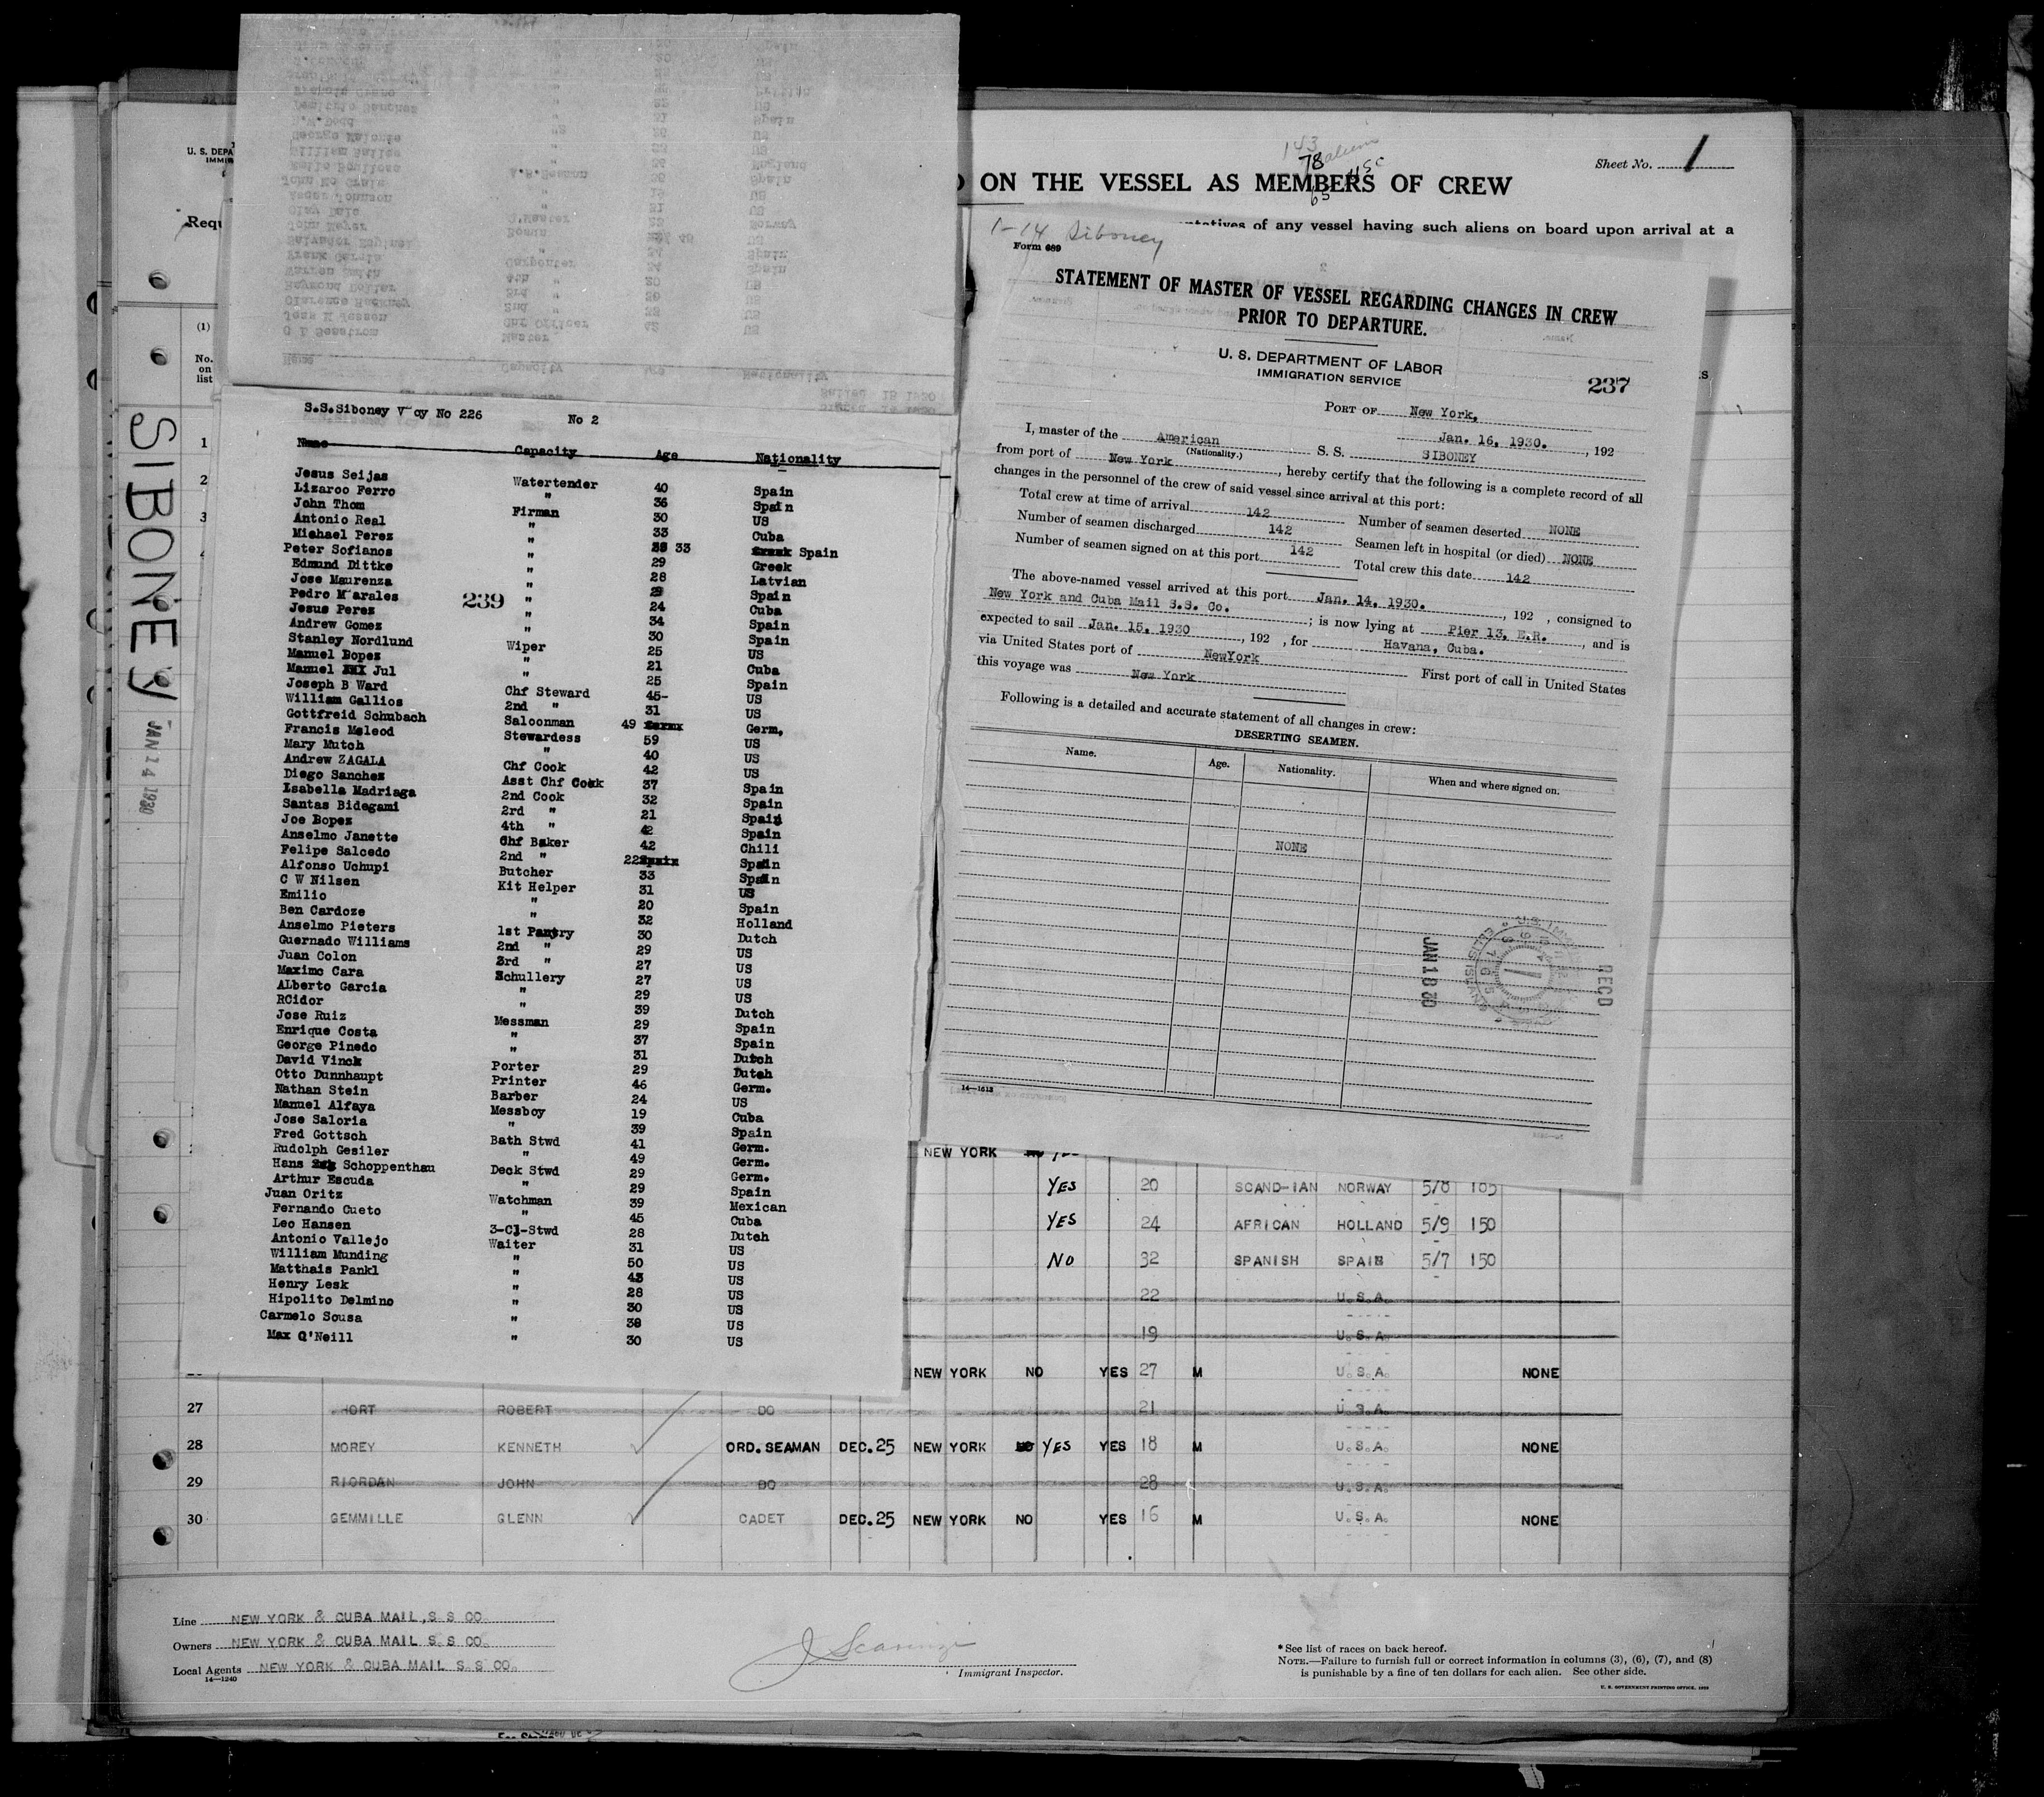 U. S. DEPA
IMMIG
Requ
(1)
No. on list
1
2
3
SIBONEY
JAN 14 1930
S.S.Siboney Voy No 226 No 2
Name Capacity Age Nationality
Jesus Seijas Watertender 40 Spain
Lizaroo Ferro " 36 Spain
John Thom Firman 30 US
Antonio Real " 33 Cuba
Michael Perez " 33 Spain
Peter Sofianos " 29 Greek
Edmund Dittke " 28 Latvian
Jose Maurenza " 29 Spain
Pedro Marales 239 " 24 Cuba
Jesus Perez " 34 Spain
Andrew Gomez " 30 Spain
Stanley Nordlund Wiper 25 US
Manuel Bopez " 21 Cuba
Manuel Jul " 25 Spain
Joseph B Ward Chf Steward 45- US
William Gallios 2nd " 31 US
Gottfreid Schubach Saloonman 49 Germ.
Francis Mcleod Stewardess 59 US
Mary Mutch " 40 US
Andrew ZAGALA Chf Cook 42 US
Diego Sanchez Asst Chf Cook 37 Spain
Isabella Madriaga 2nd Cook 32 Spain
Santas Bidegami 3rd " 21 Spain
Joe Bopez 4th " 42 Spain
Anselmo Janette Chf Baker 42 Chili
Felipe Salcedo 2nd " 22 Spain
Alfonso Uchupi Butcher 33 Spain
C W Nilsen Kit Helper 31 US
Emilio " 20 Spain
Ben Cardoze " 32 Holland
Anselmo Pieters 1st Pantry 30 Dutch
Guernado Williams 2nd " 29 US
Juan Colon 3rd " 27 US
Maximo Cara Schullery 27 US
ALberto Garcia " 29 US
RCidor " 39 Dutch
Jose Ruiz Messman 29 Spain
Enrique Costa " 37 Spain
George Pinedo " 31 Dutch
David Vinck Porter 29 Dutch
Otto Dunnhaupt Printer 46 Germ.
Nathan Stein Barber 24 US
Manuel Alfaya Messboy 19 Cuba
Jose Saloria " 39 Spain
Fred Gottsch Bath Stwd 41 Germ.
Rudolph Gesiler " 49 Germ.
Hans Schoppenthau Deck Stwd 29 Germ.
Arthur Escuda " 29 Spain
Juan Oritz Watchman 39 Mexican
Fernando Cueto " 45 Cuba
Leo Hansen 3-Cl-Stwd 28 Dutch
Antonio Vallejo Waiter 31 US
William Munding " 50 US
Matthais Pankl " 43 US
Henry Lesk " 28 US
Hipolito Delmino " 30 US
Carmelo Sousa " 38 US
Max O'Neill " 30 US
143
78 aliens
65 USC
Sheet No. 1
ON THE VESSEL AS MEMBERS OF CREW
of any vessel having such aliens on board upon arrival at a
1-14 Siboney
Form 689
STATEMENT OF MASTER OF VESSEL REGARDING CHANGES IN CREW
PRIOR TO DEPARTURE.
U. S. DEPARTMENT OF LABOR
IMMIGRATION SERVICE
237
PORT OF New York,
Jan. 16, 1930. , 192
I, master of the American S. S. SIBONEY
(Nationality.)
from port of New York , hereby certify that the following is a complete record of all
changes in the personnel of the crew of said vessel since arrival at this port:
Total crew at time of arrival 142 Number of seamen deserted NONE
Number of seamen discharged 142 Seamen left in hospital (or died) NONE
Number of seamen signed on at this port 142 Total crew this date 142
The above-named vessel arrived at this port Jan. 14, 1930. , 192 , consigned to
New York and Cuba Mail S.S. Co. ; is now lying at Pier 13, E.R. , and is
expected to sail Jan. 15, 1930 , 192 , for Havana, Cuba.
via United States port of NewYork First port of call in United States
this voyage was New York
Following is a detailed and accurate statement of all changes in crew:
DESERTING SEAMEN.
Name. Age. Nationality. When and where signed on.
NONE
JAN 18 30
RECD
14—1613
NEW YORK
YES 20 SCAND-IAN NORWAY 5/8 165
YES 24 AFRICAN HOLLAND 5/9 150
NO 32 SPANISH SPAIN 5/7 150
22 U.S.A.
19 U.S.A.
NEW YORK NO YES 27 M U.S.A. NONE
27 SHORT ROBERT DO 21 U.S.A.
28 MOREY KENNETH ORD. SEAMAN DEC. 25 NEW YORK YES YES 18 M U.S.A. NONE
29 RIORDAN JOHN DO 28 U.S.A.
30 GEMMILLE GLENN CADET DEC. 25 NEW YORK NO YES 16 M U.S.A. NONE
Line NEW YORK & CUBA MAIL, S S CO.
Owners NEW YORK & CUBA MAIL S S CO.
Local Agents NEW YORK & CUBA MAIL S. S CO.
14—1240
J Scaringi
Immigrant Inspector.
*See list of races on back hereof.
NOTE.—Failure to furnish full or correct information in columns (3), (6), (7), and (8)
is punishable by a fine of ten dollars for each alien. See other side.
U. S. GOVERNMENT PRINTING OFFICE, 1929